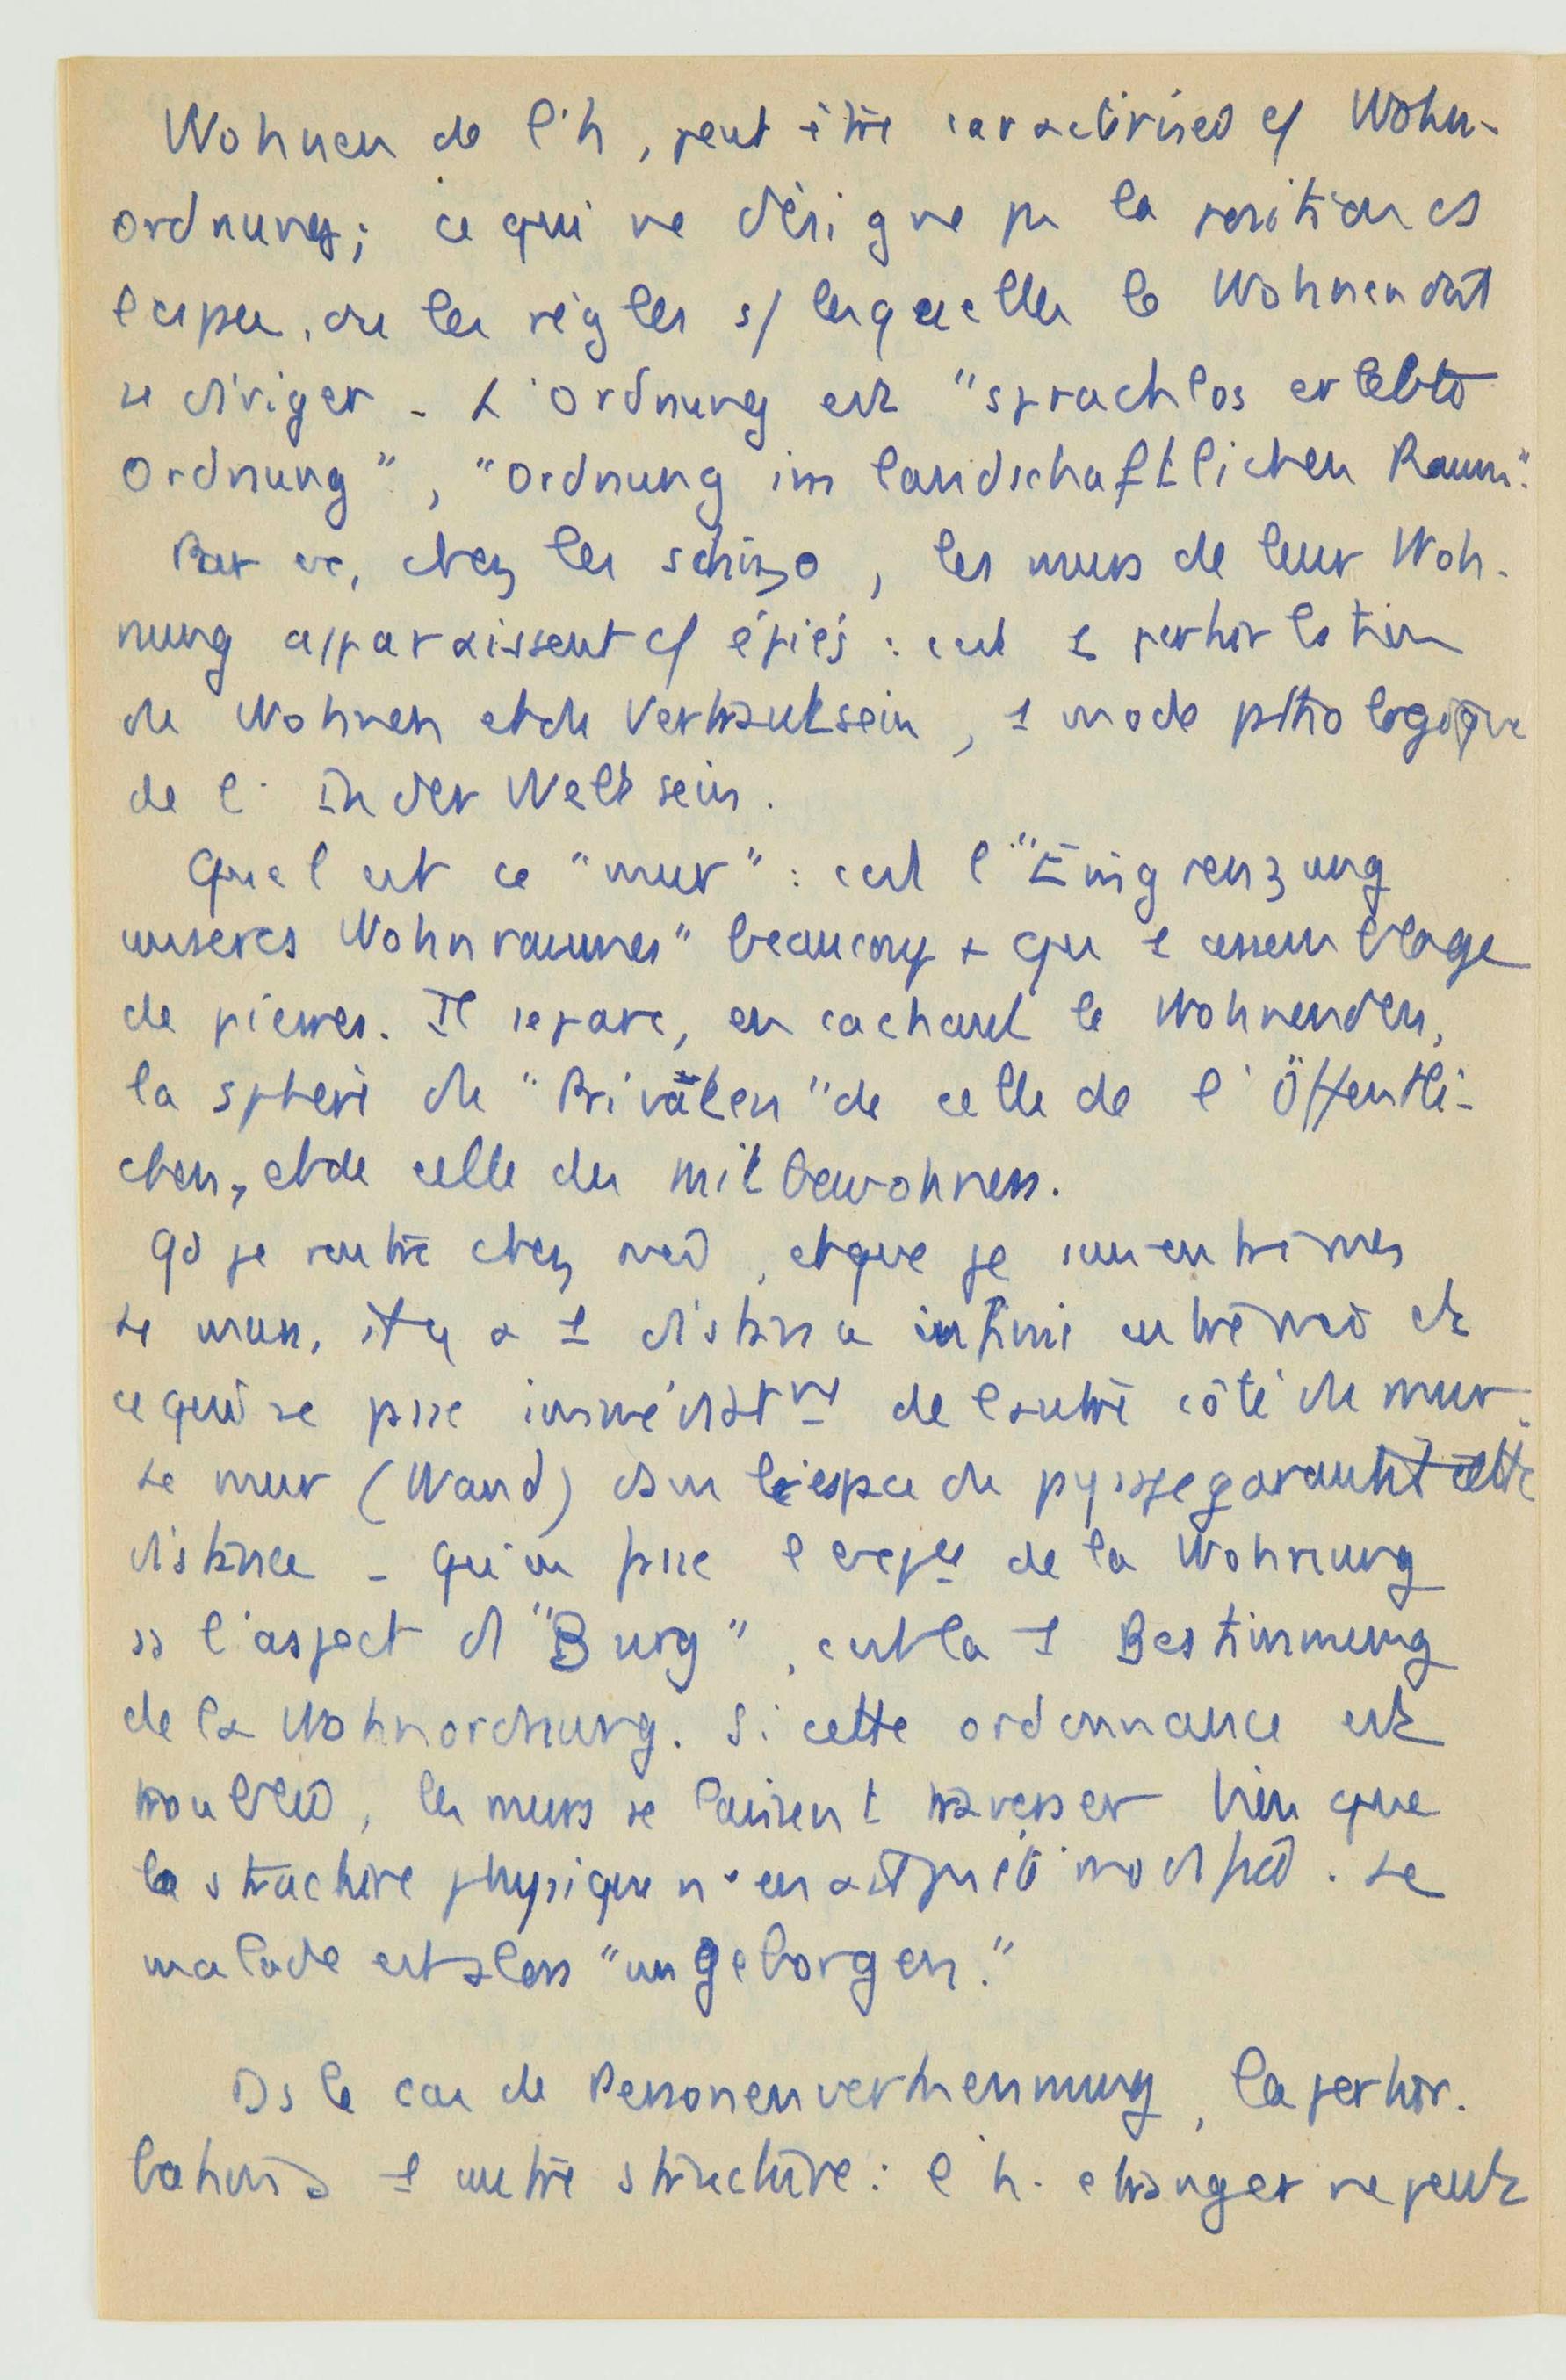 Wohnen de l'h, peut être caractérisée c/ Wohn-
ordnung; ce qui ne désigne pas la position ds
l'espace, ou les règles s/ lesquelles le Wohnen doit
se diriger - L'Ordnung est "sprachlos erlebte
Ordnung", "Ordnung im landschaftlichen Raum".
Par ex, chez les schizo, les murs de leur Woh-
nung apparaissent c/ épiés : c'est 1 perturbation
du Wohnen et du Vertrautsein, 1 mode pathologique
de l' In der Welt sein.
Quel est ce "mur" : c'est l'"Eingrenzung
unseres Wohnraumes" beaucoup + qu' 1 assemblage
de pierres. Il separe, en cachant le Wohnenden,
la sphère du "Privaten" de celle de l' Öffentli-
chen, et de celle des Mitbewohners.
Qd je rentre chez moi, et que je suis entre mes
4 murs, il y a 1 distance infinie entre moi et
ce qui se passe immédiatmt de l'autre côté du mur.
Le mur (Wand) dans l'espace du paysage garantit cette
distance - qu'on passe l'espce de la Wohnung
ss l'aspect d "Burg", c'est la 1 Bestimmung
de la Wohnordnung. Si cette ordonnance est
troublée, les murs se laissent traverser bien que
la structure physique n'en ait pas été modifiée. Le
malade est alors "ungeborgen."
Ds le cas de Personenverkennung, la pertur-
bation a 1 autre structure : l'h. etranger ne peut